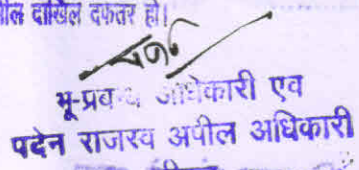 दाखिल दफतर हो।
भू-प्रबन्ध अधिकारी एव
पदेन राजस्व अपील अधिकारी